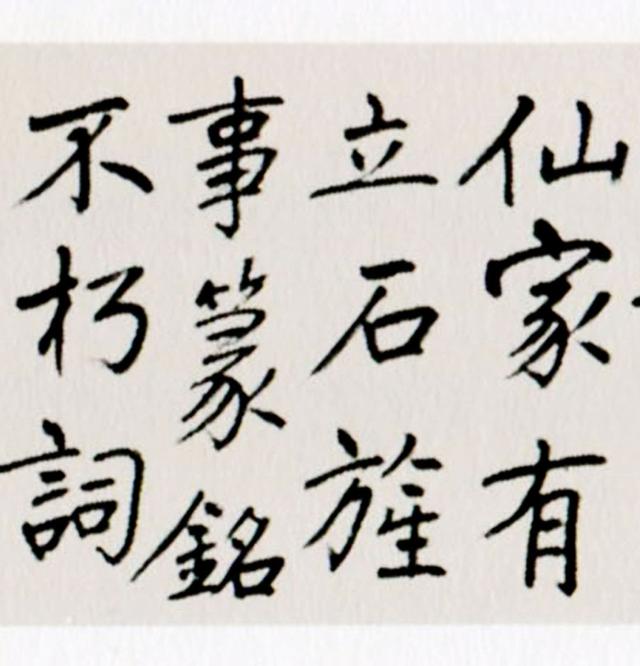 仙家有
立石旌
事篆銘
不朽詞